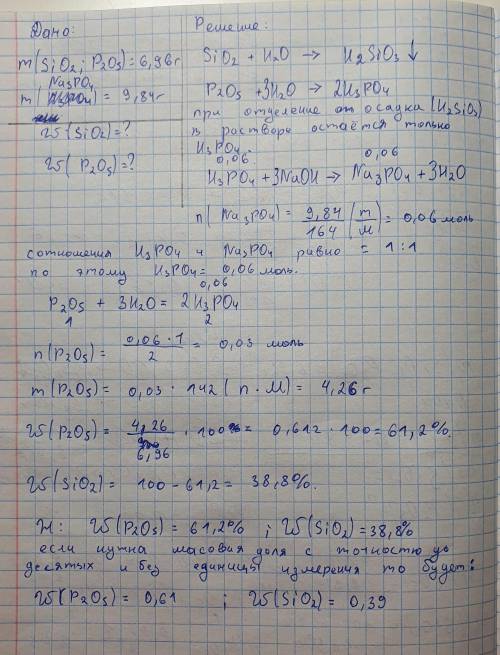 Дано:
Решение:
m(SiO₂; P₂O₅) = 6,96г
SiO₂ + H₂O → H₂SiO₃↓
m(Na₃PO₄) = 9,84г
P₂O₅ + 3H₂O → 2H₃PO₄
W(SiO₂) = ?
при отделение от осадка (H₂SiO₃)
в растворе остаётся только
W(P₂O₅) = ?
H₃PO₄.
0,06 0,06
H₃PO₄ + 3NaOH → Na₃PO₄ + 3H₂O
n(Na₃PO₄) = 9,84/164 (m/M) = 0,06 моль
соотношения H₃PO₄ и Na₃PO₄ равно = 1:1
по этому H₃PO₄ = 0,06 моль.
0,06
P₂O₅ + 3H₂O = 2H₃PO₄
1 2
n(P₂O₅) = 0,06 · 1/2 = 0,03 моль
m(P₂O₅) = 0,03 · 142 (n · M) = 4,26 г
W(P₂O₅) = 4,26/6,96 · 100% = 0,612 · 100 = 61,2%.
W(SiO₂) = 100 - 61,2 = 38,8%.
W(P₂O₅) = 61,2% ; W(SiO₂) = 38,8%
если нужна масовая доля с точностью до
десятых и без единицы измерения то будет:
W(P₂O₅) = 0,61 ; W(SiO₂) = 0,39